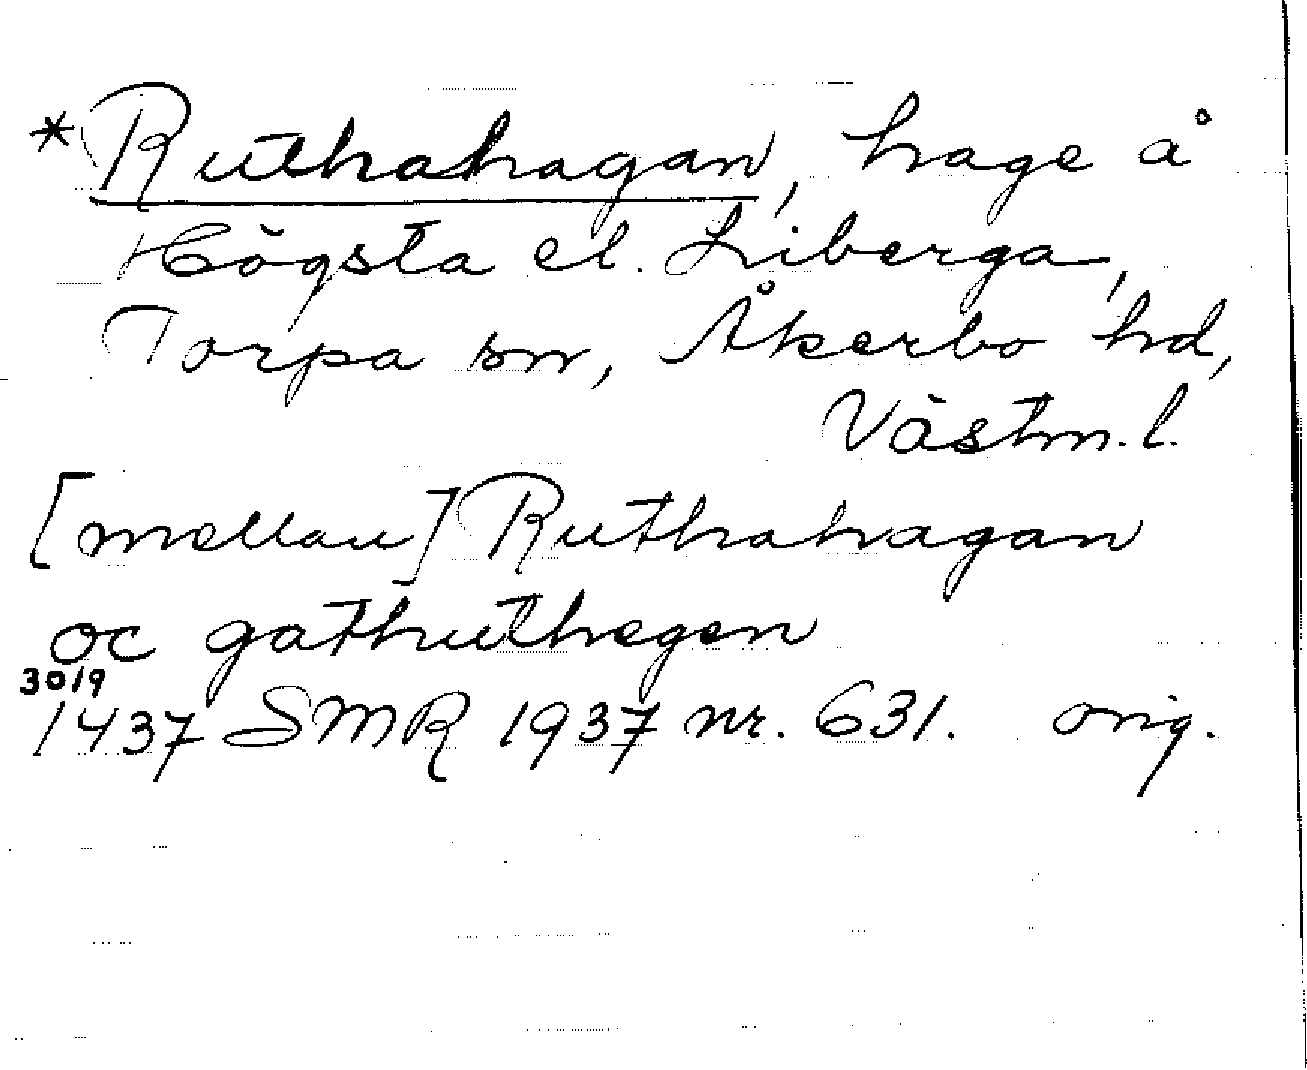 *Ruthahagan, hage å
Högsta el. Liberga,
Torpa sn, Åkerbo hd,
Västm. l.
[mellan] Ruthahagan
oc gathuthegen
30/9
1437 SMR 1937 nr. 631. orig.